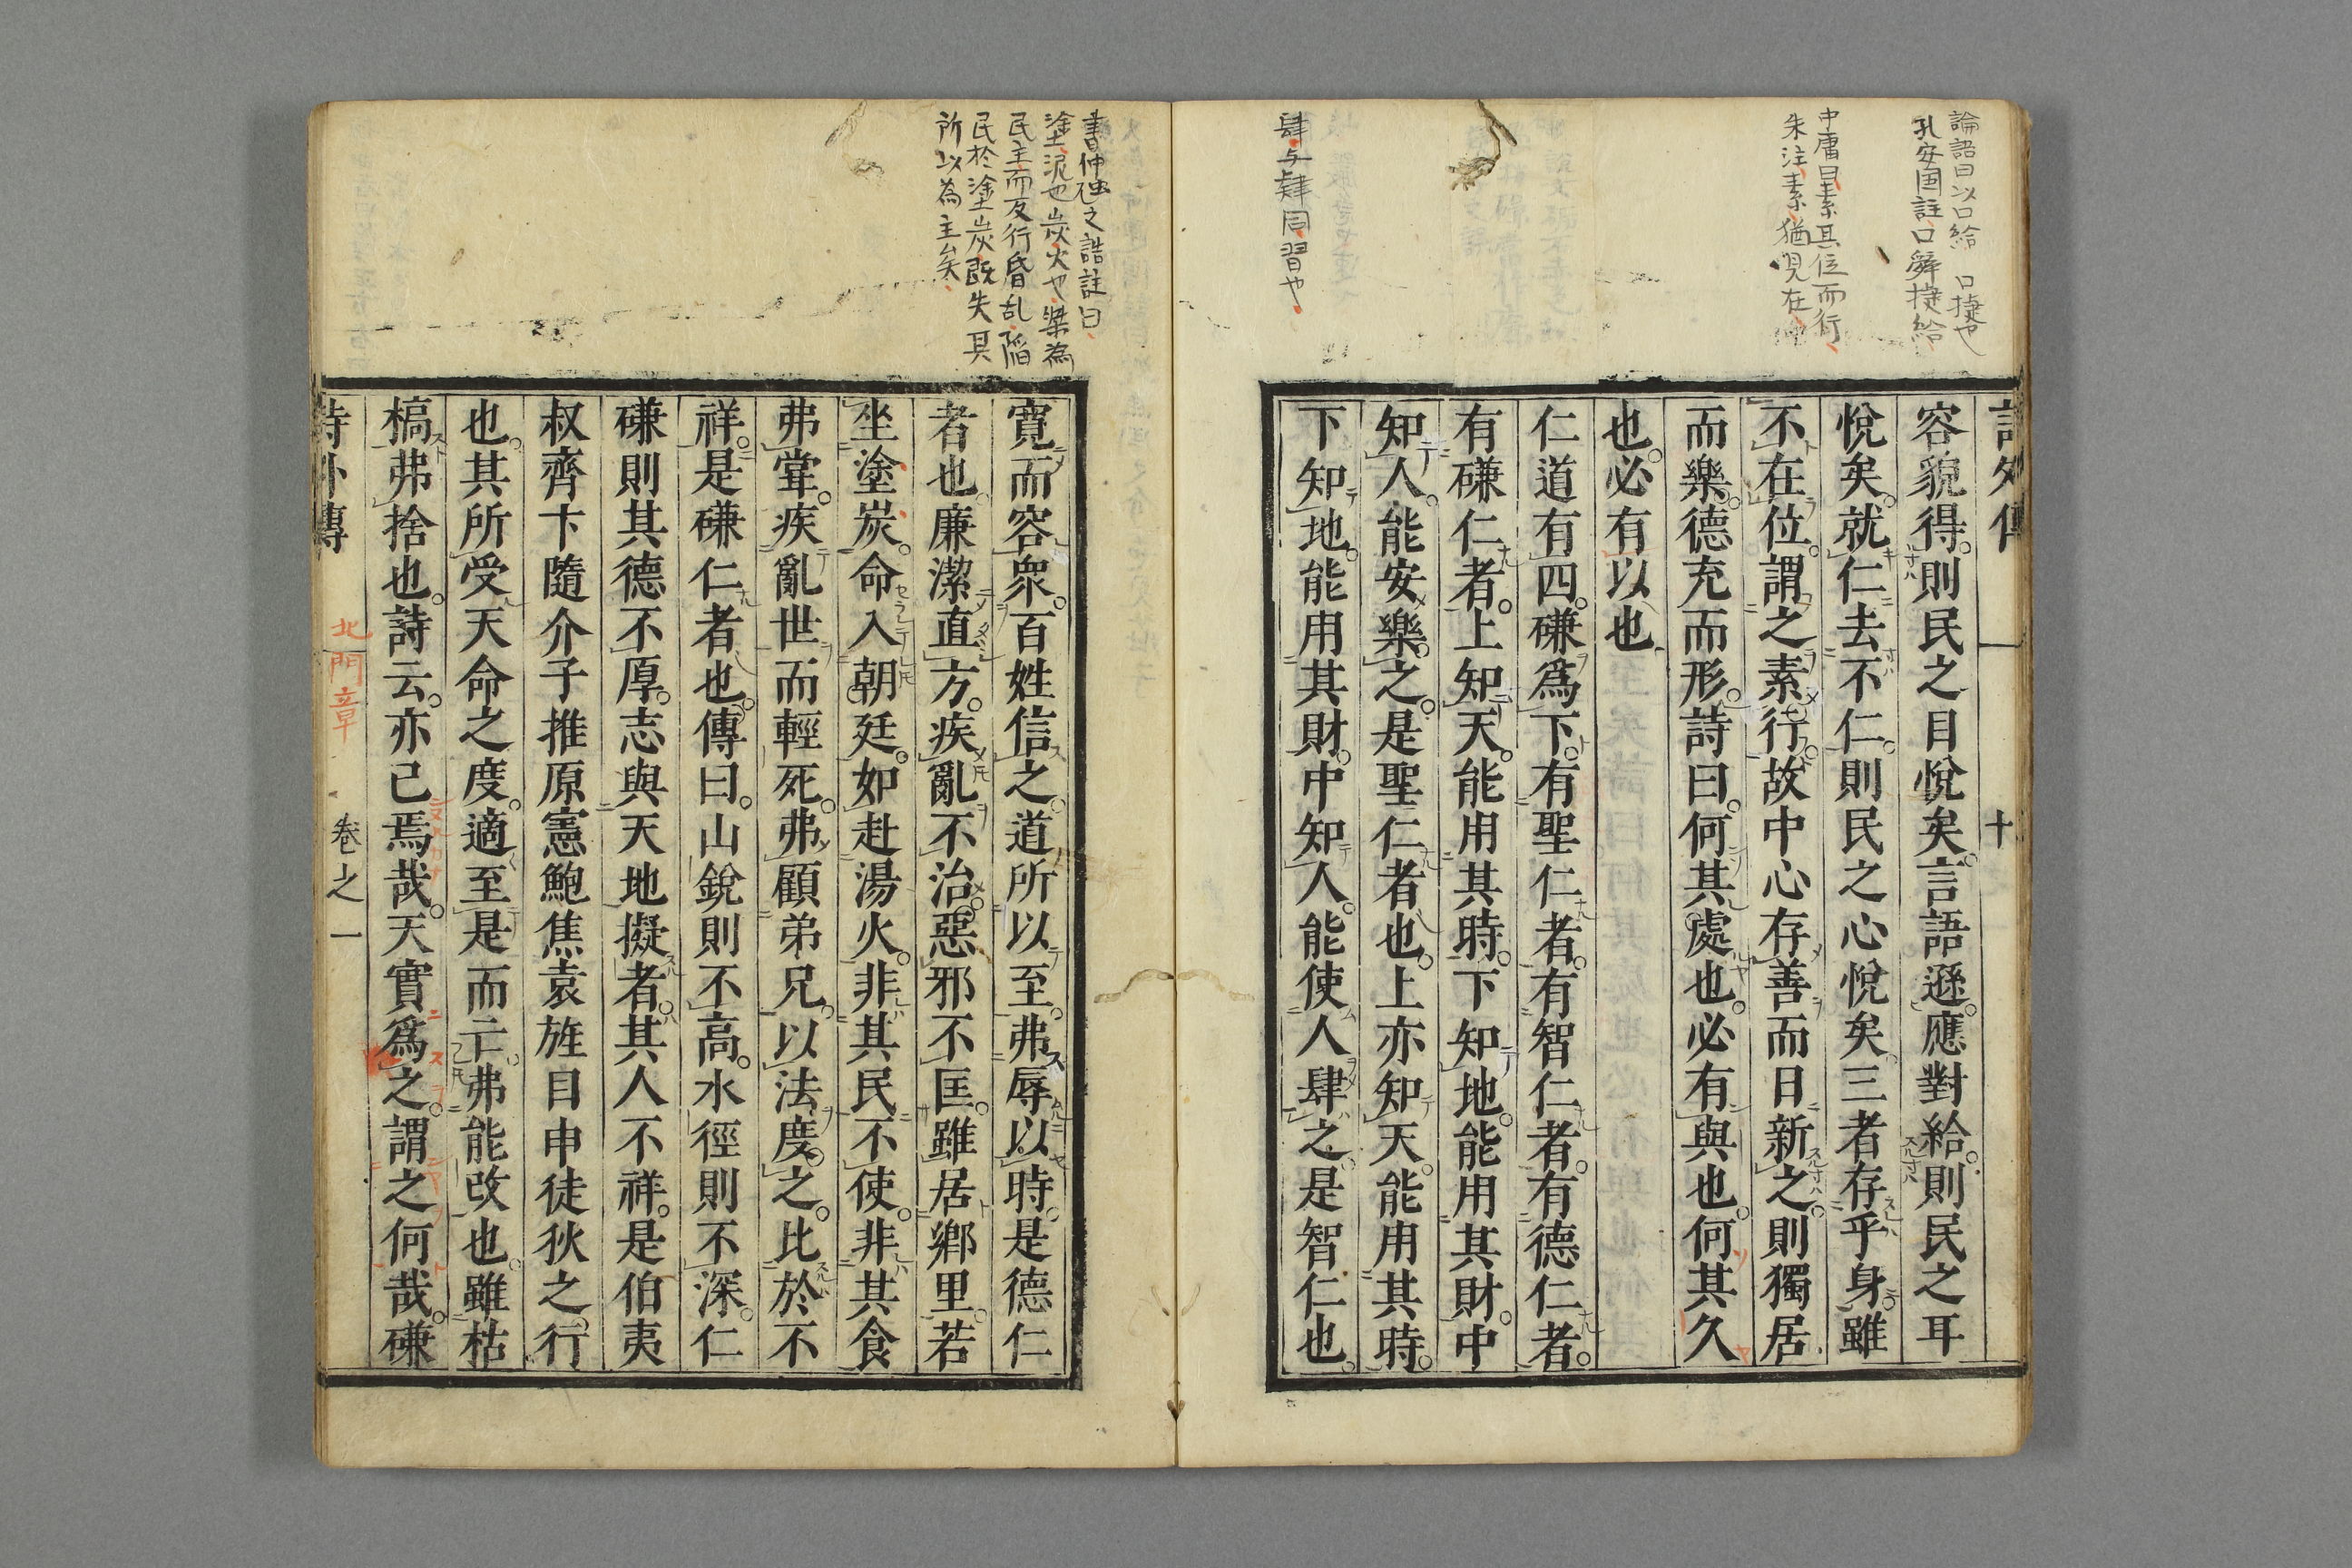 論語曰以口給 口捷也
孔安国註口辞捷給
中庸曰素其位而行
朱注素猶現在
肆与肄同習也
詩外傳 十
容貌得則民之目悅矣言語遜應對給則民之耳
悅矣就仁去不仁則民之心悅矣三者存乎身雖
不在位謂之素行故中心存善而日新之則獨居
而樂德充而形詩曰何其處也必有與也何其久
也必有以也
仁道有四磏爲下有聖仁者有智仁者有德仁者
有磏仁者上知天能用其時下知地能用其財中
知人能安樂之是聖仁者也上亦知天能用其時
下知地能用其財中知人能使人肆之是智仁也
書仲虺之誥註曰
塗泥也炭火也桀為
民主而反行昏乱陥
民於塗炭既失其
所以為主矣
寬而容衆百姓信之道所以至弗辱以時是德仁
者也廉潔直方疾亂不治惡邪不匡雖居鄉里若
坐塗炭命入朝廷如赴湯火非其民不使非其食
弗甞疾亂世而輕死弗顧弟兄以法度之比於不
祥是磏仁者也傳曰山銳則不高水徑則不深仁
磏則其德不厚志與天地擬者其人不祥是伯夷
叔齊卞隨介子推原憲鮑焦袁旌目申徒狄之行
也其所受天命之度適至是而亡弗能改也雖枯
槁弗捨也詩云亦已焉哉天實爲之謂之何哉磏
詩外傳 北門章 卷之一